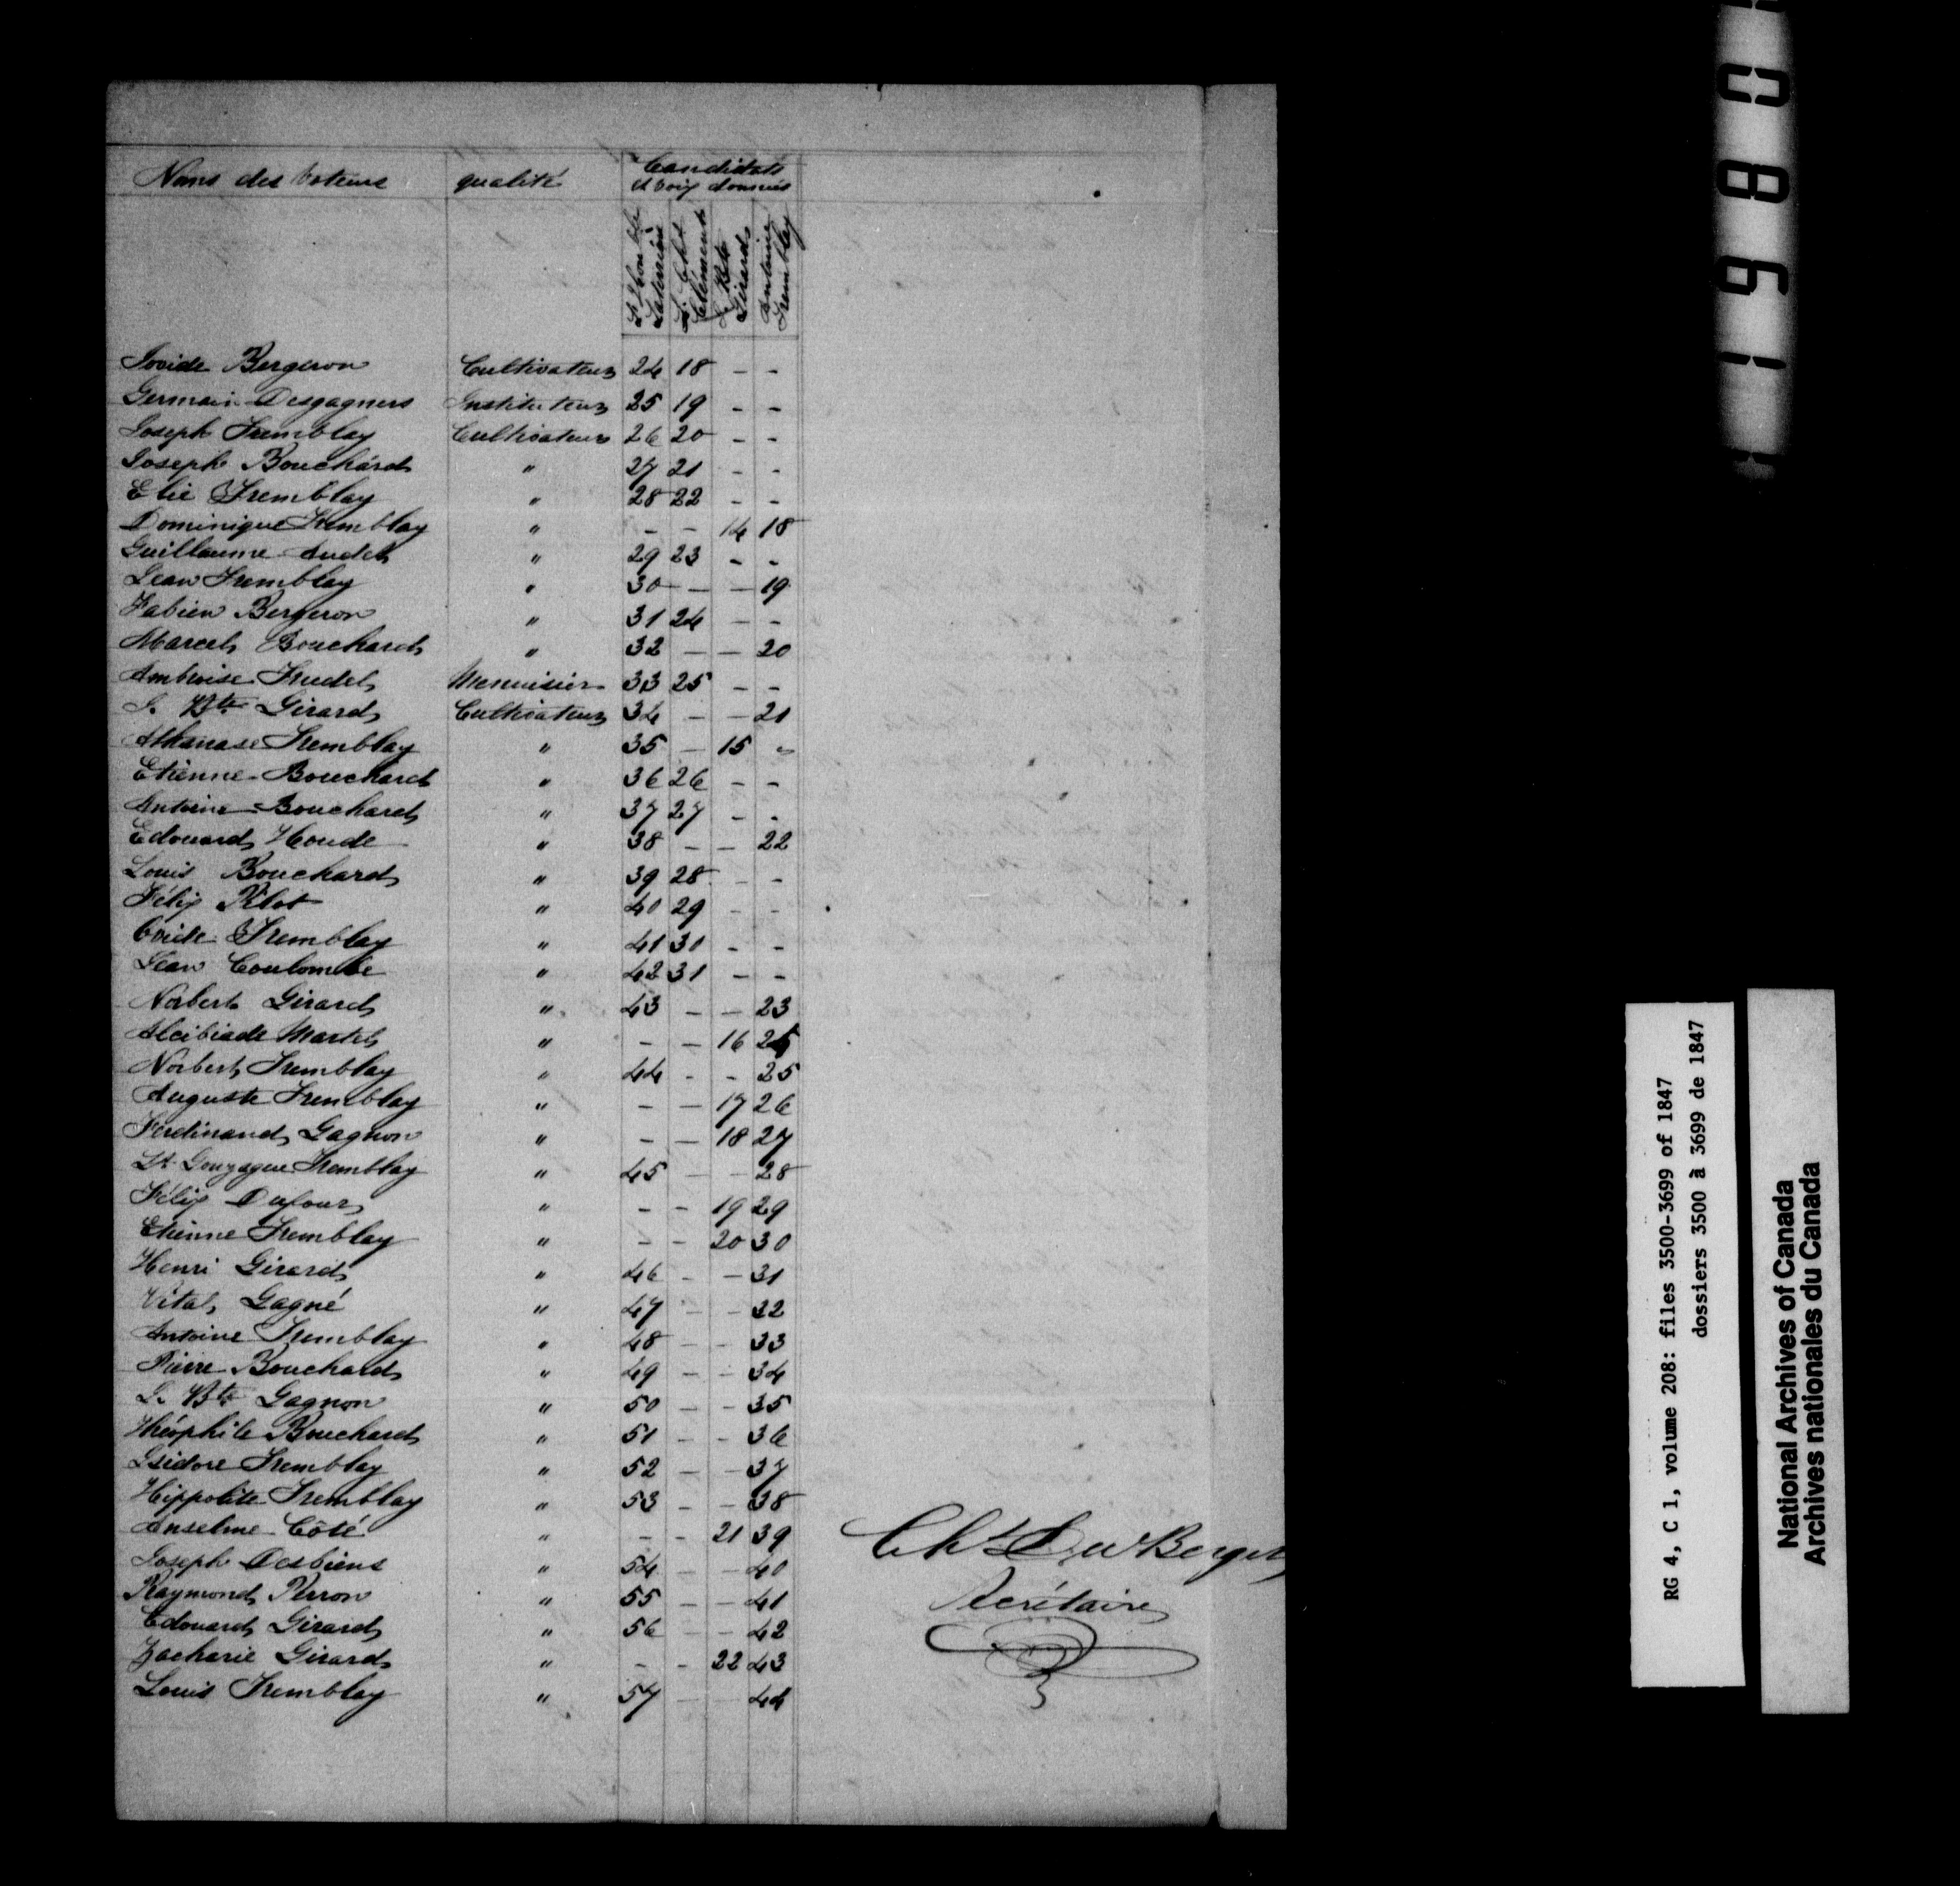 Noms des Voteurs qualité Candidats
et voix données
J. Bte Girard
Antoine Tremblay
Ovide Bergeron Cultivateur 24 18 - -
Germain Desgagners Instituteur 25 19 - -
Joseph Tremblay Cultivateur 26 20 - -
Joseph Bouchard " 27 21 - -
Elie Tremblay " 28 22 - -
Dominique Tremblay " - - 14 18
Guillaume Audet " 29 23 - -
Jean Tremblay " 30 - - 19
Fabien Bergeron " 31 24 - -
Marcel Bouchard " 32 - - 20
Ambroise Trudel Menuisier 33 25 - -
J. Bte Girard Cultivateur 34 - - 21
Athanase Tremblay " 35 - 15 -
Etienne Bouchard " 36 26 - -
Antoine Bouchard " 37 27 - -
Edouard Houde " 38 - - 22
Louis Bouchard " 39 28 - -
Félix Pilot " 40 29 - -
Ovide Tremblay " 41 30 - -
Jean Coulombe " 42 31 - -
Norbert Girard " 43 - - 23
Alcibiade Martel " - - 16 24
Norbert Tremblay " 44 - - 25
Auguste Tremblay " - - 17 26
Ferdinand Gagnon " - - 18 27
Ls Gonzague Tremblay " 45 - - 28
Félix Dufour " - - 19 29
Etienne Tremblay " - - 20 30
Henri Girard " 46 - - 31
Vital Gagné " 47 - - 32
Antoine Tremblay " 48 - - 33
Pierre Bouchard " 49 - - 34
J. Bte Gagnon " 50 - - 35
Théophile Bouchard " 51 - - 36
Isidore Tremblay " 52 - - 37
Hippolite Tremblay " 53 - - 38
Anselme Côté " - - 21 39
Joseph Desbiens " 54 - - 40
Raymond Perron " 55 - - 41
Edouard Girard " 56 - - 42
Zacharie Girard " - - 22 43
Louis Tremblay " 57 - - 44
Chs DuBerger
Secrétaire
1980
RG 4, C 1, volume 208: files 3500-3699 of 1847
dossiers 3500 à 3699 de 1847
National Archives of Canada
Archives nationales du Canada